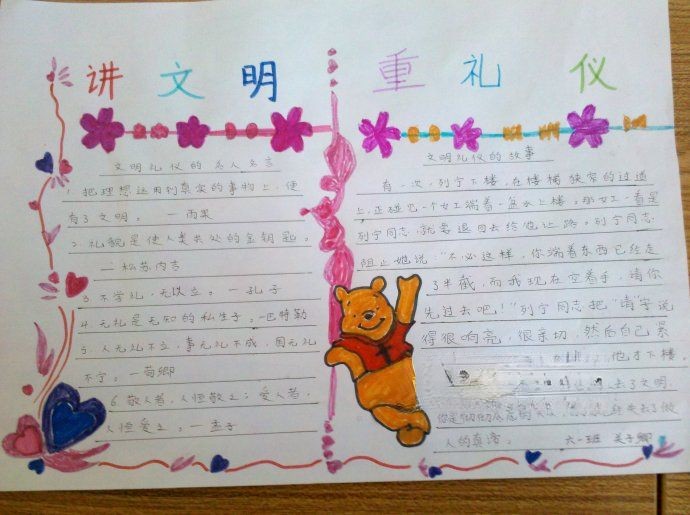 讲文明 重礼仪
文明礼仪的名人名言
1. 把理想运用到真实的事物上，便
有了文明。 —雨果
2. 礼貌是使人类共处的金钥匙。
—松苏内吉
3. 不学礼，无以立。 —孔子
4. 无礼是无知的私生子。—巴特勒
5. 人无礼不立，事无礼不成，国无礼
不宁。—荀卿
6. 敬人者，人恒敬之；爱人者，
人恒爱之。—孟子
文明礼仪的故事
有一次，列宁下楼，在楼梯狭窄的过道
上，正碰见一个女工端着一盆水上楼。那女工一看是
列宁同志，就要退回去给他让路。列宁同志
阻止她说："不必这样，你端着东西已经走
了半截，而我现在空着手，请你
先过去吧！"列宁同志把"请"字说
得很响亮，很亲切。然后自己紧
他才下楼。
去了文明，
失去了做
人的真谛。 六一班